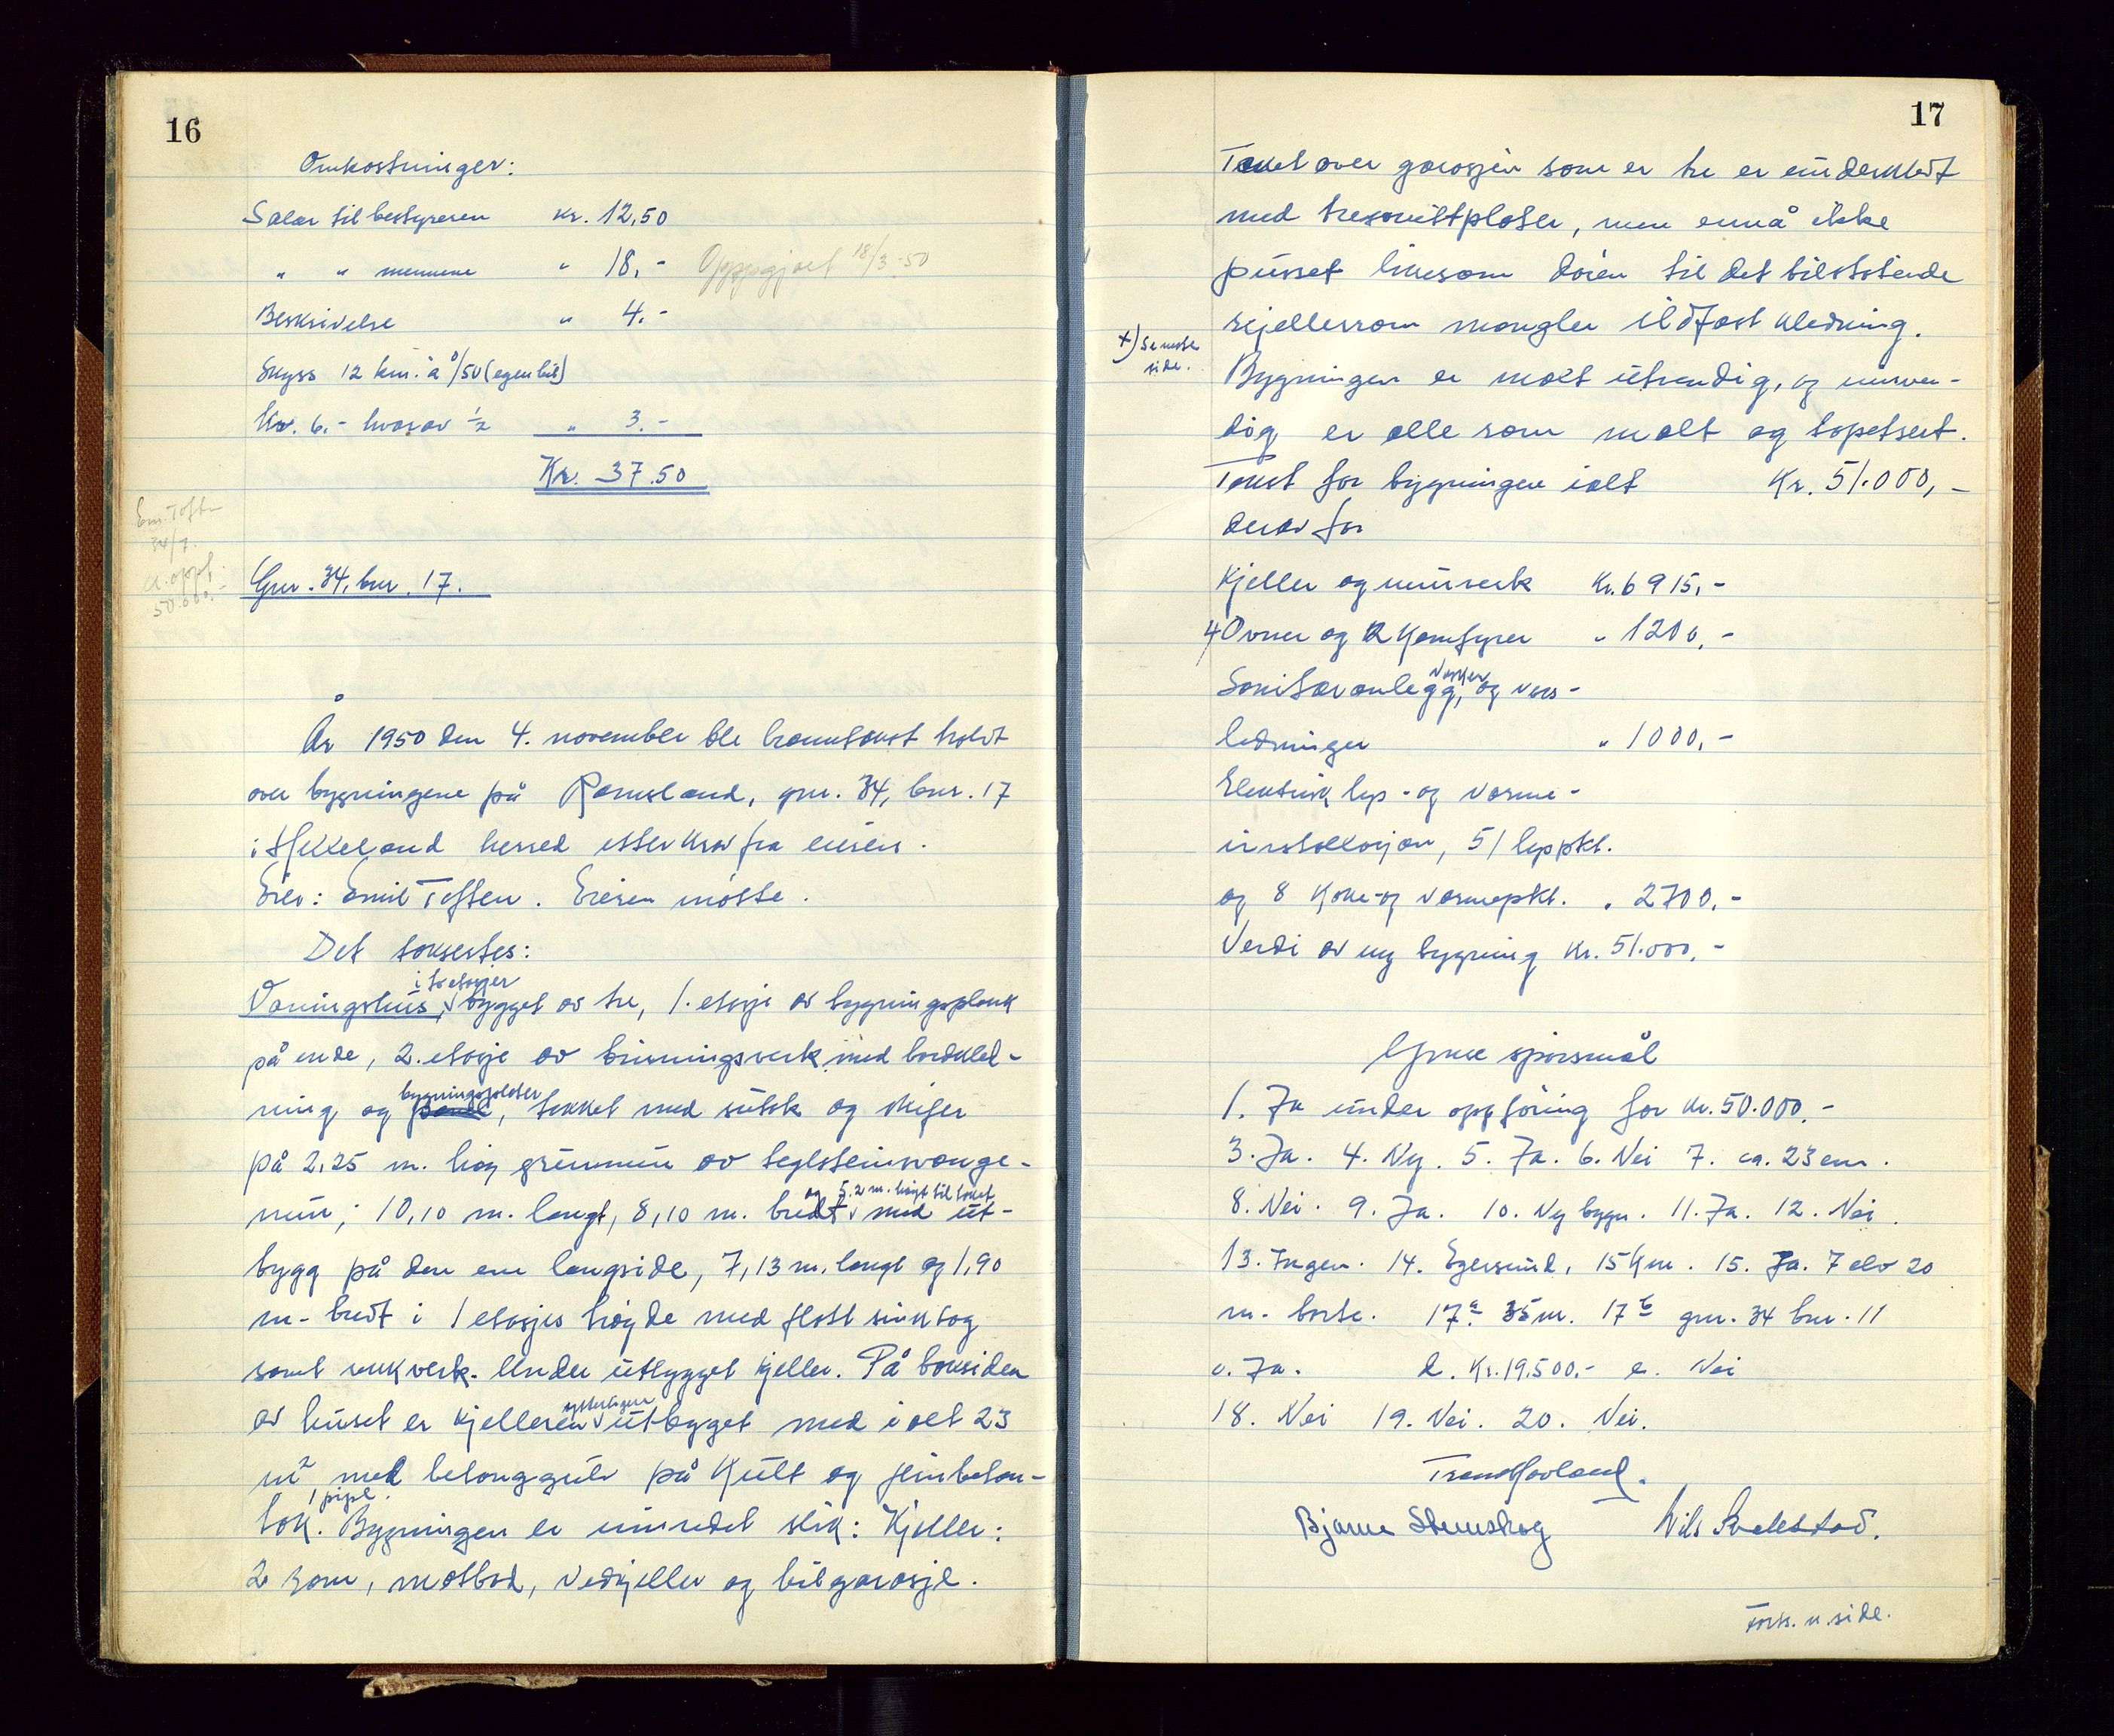 16
Omkostninger:
Salær til bestyreren kr. 12,50
" " mennene " 18,- Oppgjort 18/3-50
Beskrivelse " 4.-
Skyss 12 km. à o/50 (egen bil)
kr. 6.- hvorav 1/2 " 3.-
Kr. 37.50
Em. Toften
34/7.
50.000.-
Gnr. 34, bnr. 17.
År 1950 den 4. november ble branntakst holdt
over bygningene på Ramsland, gnr. 34, bnr. 17
i Helleland herred etter krav fra eieren.
Eier: Emil Toften. Eieren møtte.
Det taksertes:
i to etasjer
Våningshus, bygget av tre, 1. etasje av bygningsplank
på ende, 2. etasje av binningsverk med bordkled-
bygningsplater
ning og panel, tekket med sutak og skifer
på 2,25 m. høy grunnmur av teglsteinsvange-
og 5.2 m. høgt til taket
mur; 10,10 m. langt, 8,10 m. bredt med ut-
bygg på den ene langside, 7,13 m. langt og 1,90
m. bredt i 1 etasjes høyde med flatt sinktag
samt rekkverk. Under utbygget kjeller. På baksiden
ytterligere
av huset er kjelleren utbygget med i alt 23
m2 med betonggulv på kult og jernbeton-
1 pipe.
tak. Bygningen er innredet slik: Kjeller:
2 rom, matbod, vedkjeller og bilgarasje.
17
Taket over garasjen som er tre er underkledt
med tresonittplater, men ennå ikke
pusset likesom døren til det tilstøtende
kjellerrom mangler ildfast kledning.
+) Se neste
side.
Bygningen er malt utvendig, og innven-
dig er alle rom malt og tapetsert.
Takst for bygningen ialt Kr. 51.000,-
derav for
Kjeller og murverk Kr. 6915,-
4 Ovner og 2 Komfyrer " 1200,-
vasker
Sanitæranlegg, og vass-
ledninger " 1000,-
Elektrisk lys- og varme-
installasjon, 51 lyspkt.
og 8 koke- og varmepkt. " 2700.-
Verdi av ny bygning kr. 51.000.-
Ymse spørsmål
1. Ja under oppføring for kr. 50.000.-
3. Ja. 4. Ny. 5. Ja. 6. Nei 7. ca. 23 cm.
8. Nei. 9. Ja. 10. Ny bygn. 11. Ja. 12. Nei.
13. Ingen. 14. Egersund, 15 Km. 15. Ja. 7 elv 20
m. borte. 17a 35 m. 17b gnr. 34 bnr. 11
c. Ja. d. Kr. 19.500.- e. Nei
18. Nei 19. Nei. 20. Nei.
Tran Hovland.
Bjarne Stenskog Nils Svalestad.
Forts. n. side.